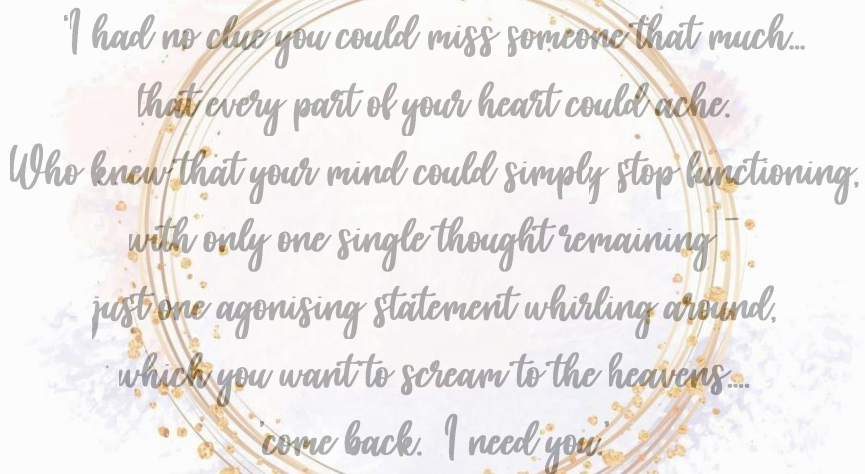 'I had no clue you could miss someone that much...
that every part of your heart could ache.
Who knew that your mind could simply stop functioning,
with only one single thought remaining –
just one agonising statement whirling around,
which you want to scream to the heavens....
'come back. I need you.'